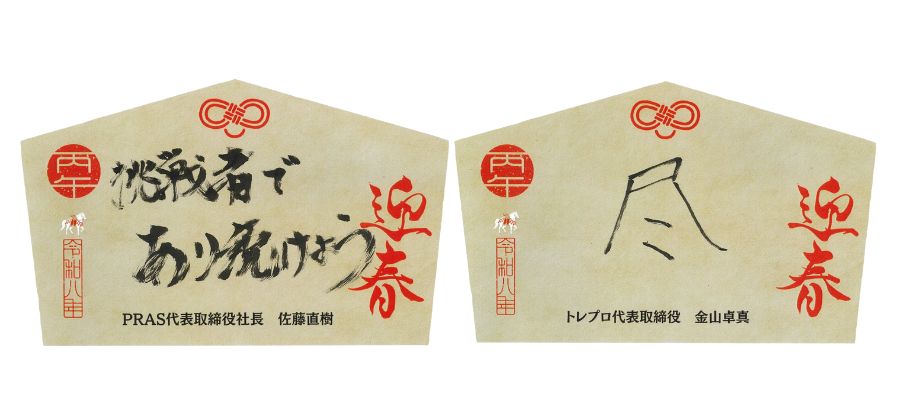 丙午
令和八年
挑戦者で
あり続けよう
迎春
PRAS代表取締役社長 佐藤直樹
丙午
令和八年
尽
迎春
トレプロ代表取締役 金山卓真